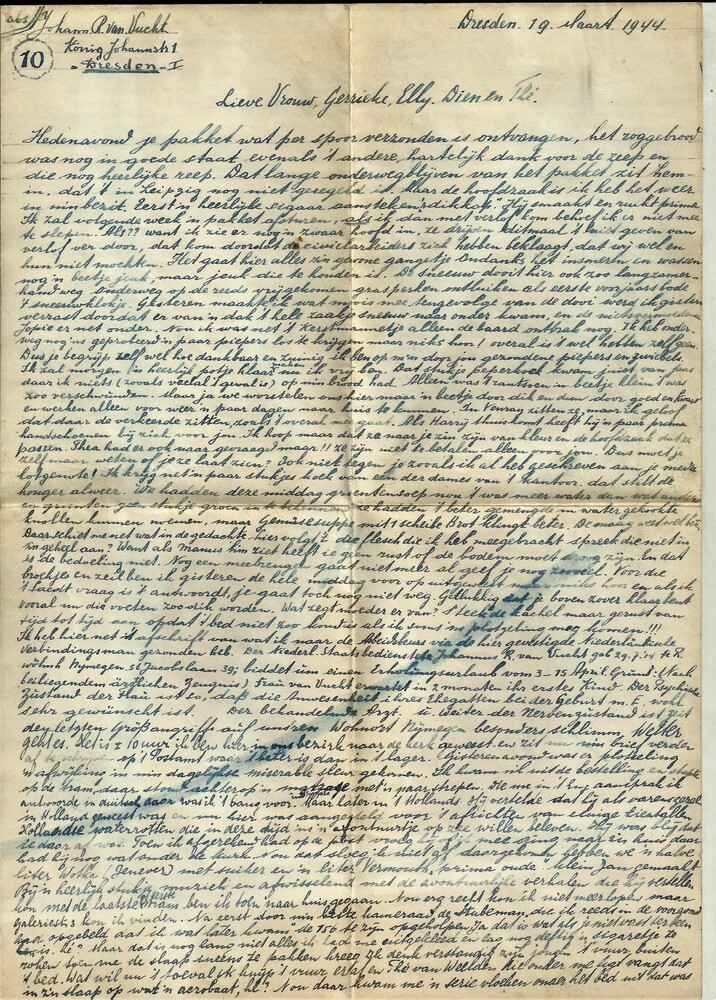 Johann R. van Vucht
König Johannstr 1
Dresden - I
10
Dresden. 19 Maart 1944.
Lieve Vrouw, Gerrieke, Elly. Dien en Thé.
Hedenavond je pakket wat per spoor verzonden is ontvangen, het roggebrood
was nog in goede staat, evenals 't andere, hartelijk dank voor de zeep en
die nog heerlijke reep. Dat lange onderwegblijven van het pakket zit hem-
in, dat 't in Leipzig nog niet geregeld is. Maar de hoofdzaak is ik heb het weer
in mijn bezit. Eerst 'n heerlijke sigaar aansteken 'n dikkop". Hij smaakt en ruikt prima
Ik zal volgende week 'n pakket afsturen, als ik dan met verlof kom behoef ik er niet mee
te slepen. Als?? want ik zie er nog 'n zwaar hoofd in, ze drijven ditmaal 't niet geven van
verlof ver door, dat kom doordat de civiele arbeiders zich hebben beklaagd, dat wij wel en
hun niet mochten. Het gaat hier alles z'n gewone gangetje Ondanks het insmeren en wassen
nog 'n beetje jeuk, maar jeuk die te houden is. De sneeuw dooit hier ook zoo langzamer-
hand weg. Onderweg op de reeds vrijgekomen grasperken ontluiken als eerste voorjaars bode
't sneeuwklokje. Gisteren maakte ik wat moois mee, tengevolge van de dooi werd ik gisteren
verrast doordat er van 'n dak 't hele zaakje sneeuw naar onder kwam, en de nietsvermoedende
Jopie er net onder. Nou ik was net 't Kerstmannetje alleen de baard ontbrak nog. Ik heb onder-
weg nog 'ns geprobeerd 'n paar piepers los te krijgen maar niks hoor! overal is 't wel hebben zelf geen
Dus je begrijp zelf wel hoe dankbaar en zuinig ik ben op m'n door jou gezondene piepers en zwiebels.
Ik zal morgen 'ns heerlijk potje klaar maken ik vrij ben. Dat stukje peperkoek kwam juist van pas
daar ik niets (zooals veelal 't geval is) op mijn brood had. Alleen was 't rantsoen 'n beetje klein 't was
zoo verschwunden. Maar ja we worstelen ons hier maar 'n beetje door dik en dun door goed en kwaad
en werken alleen voor weer 'n paar dagen naar huis te kunnen. In Venray zitten ze, maar ik geloof
dat daar de verkeerde zitten, zooals 't overal mee gaat. Als Harry thuis komt heeft hij 'n paar prima
handschoenen bij zich voor jou. Ik hoop maar dat ze naar je zin zijn van kleur en de hoofdzaak dat ze
passen. Thea had er ook naar gevraagd maar!! ze zijn niet te betalen, alleen voor jou. Dus moet je
zelf maar weten of je ze laat zien? Ook niet tegen je zooals ik al heb geschreven aan je mede
lotgenote! Ik krijg net 'n paar stukjes koek van een der dames van 't kantoor. dat stilt de
honger alweer. We hadden deze middag groentensoep nou 't was meer water dan wat anders
en groenten geen stukje groen in te bekennen hadden 't beter gemengde in water gekookte
knollen kunnen noemen, maar Gemüsesuppe mit 1 scheibe Brot klingt beter. De maag
Daar schiet me net wat in de gedachte, hier volgt 'n de flesch die ik heb meegebracht spreek die niet in
z'n geheel aan? Want als Manus hem ziet heeft ie geen rust of de bodem moet droog zijn. En dat
is de bedoeling niet. Nog een meebrengen gaat niet meer al geef je nog zooveel. Voor die
broekjes en zeil ben ik gisteren de hele middag voor op uitgeweest maar niks hoor en als ik
't Laedt vraag is 't antwoordt, je gaat toch nog niet weg. Gelukkig dat je boven zover klaar bent
vooral nu die voeten zoo dik worden. Wat zegt moeder er van? Steek de kachel maar gerust van
tijd tot tijd aan opdat 't bed niet zoo koud is als ik soms 'ns plotseling mag komen!!!
Ik heb hier net 't afschrift van wat ik naar de Arbeidsbeurs via de hier gevestigde Niederländische
Verbindingsman gezonden heb. Der Niederl. Staatsbedienstete Johannus R. van Vucht geb 29.7.14 te R
wohnh Nymegen. St Jacobslaan 39; biddet um einen Erholungsurlaub vom 3-15 April. Grund: (Nach
beiliegendem ärztlichen Zeugnis) Frau van Vucht erwartet in 2 monaten ihr erstes Kind. Der Psychische
Zustand der Frau ist so, daß die Anwesenheit ihres Ehegatten bei der Geburt m. E. wohl
sehr gewünscht ist. Der behandelnde Arzt. u. Weiter der Nervenzustand ist seit
den letzten Größangriffs auf unsren Wohnort Nymegen besonders schlimm. Wetter
geht es. Het is ± 10 uur ik ben hier in ons bezirk naar de kerk geweest en zit nu m'n brief verder
af te op 't Postamt waar 't beter is dan in 't lager. Gisterenavond was er plotseling
'n afwijking in mijn dagelijkse miserable sleur gekomen. Ik kwam nl uit de bestelling en stapte
op de tram, daar stond achterop 'n matroze met 'n paar strepen. Die me in 't Eng aansprak ik
antwoorde in duitsch daar was ik 't bang voor. Maar later in 't Hollands. Hij vertelde dat hij als varensgezel
in Holland geweest was en nu hier was aangesteld voor 't africhten van eenige tientallen
Hollandse waterrotten die in deze tijd 'ns 'n avontuurtje op zee willen beleven. Hij was blij dat
ie daar af was. Toen ik afgerekend had op de post vroeg hij of ik mee ging naar z'n huis daar
had hij nog wat onder de kurk. Nou dat sloeg ik niet af, daar gekomen hebben we 'n halve
liter Wotka (Jenever) met suiker en 'n liter Vermouth, prima oude Klein Jan gemaakt
Bij 'n heerlijk stukje muziek en afwisselend met de avontuurlijke verhalen die hij vertellen
kon met de laatste ben ik toen naar huis gegaan. Nou erg recht kon ik niet meer lopen maar
Galeriestr 1 kon ik vinden. Na eerst door mijn beste kameraad, de Stubeman die ik reeds in de voorgaande
had opgebeld dat ik wat later kwam, de 156 te zijn opgeholpen. Ja dat is wat als je niet vast ter been
is. hè? Maar dat is nog lang niet alles ik had me uitgekleed en lag nog deftig 'n sigaretje te
roken toen me de slaap ineens te pakken kreeg. Ik denk verstandig zijn jongen 't vuur buiten
't bed. Wat wil nu 't toeval ik knijp 't vuur eraf en Thé van Weelden die onder me ligt vangt dat
in z'n slaap op wat 'n acrobaat, hè? Nou daar kwam me 'n serie vloeken onder het bed uit dat was